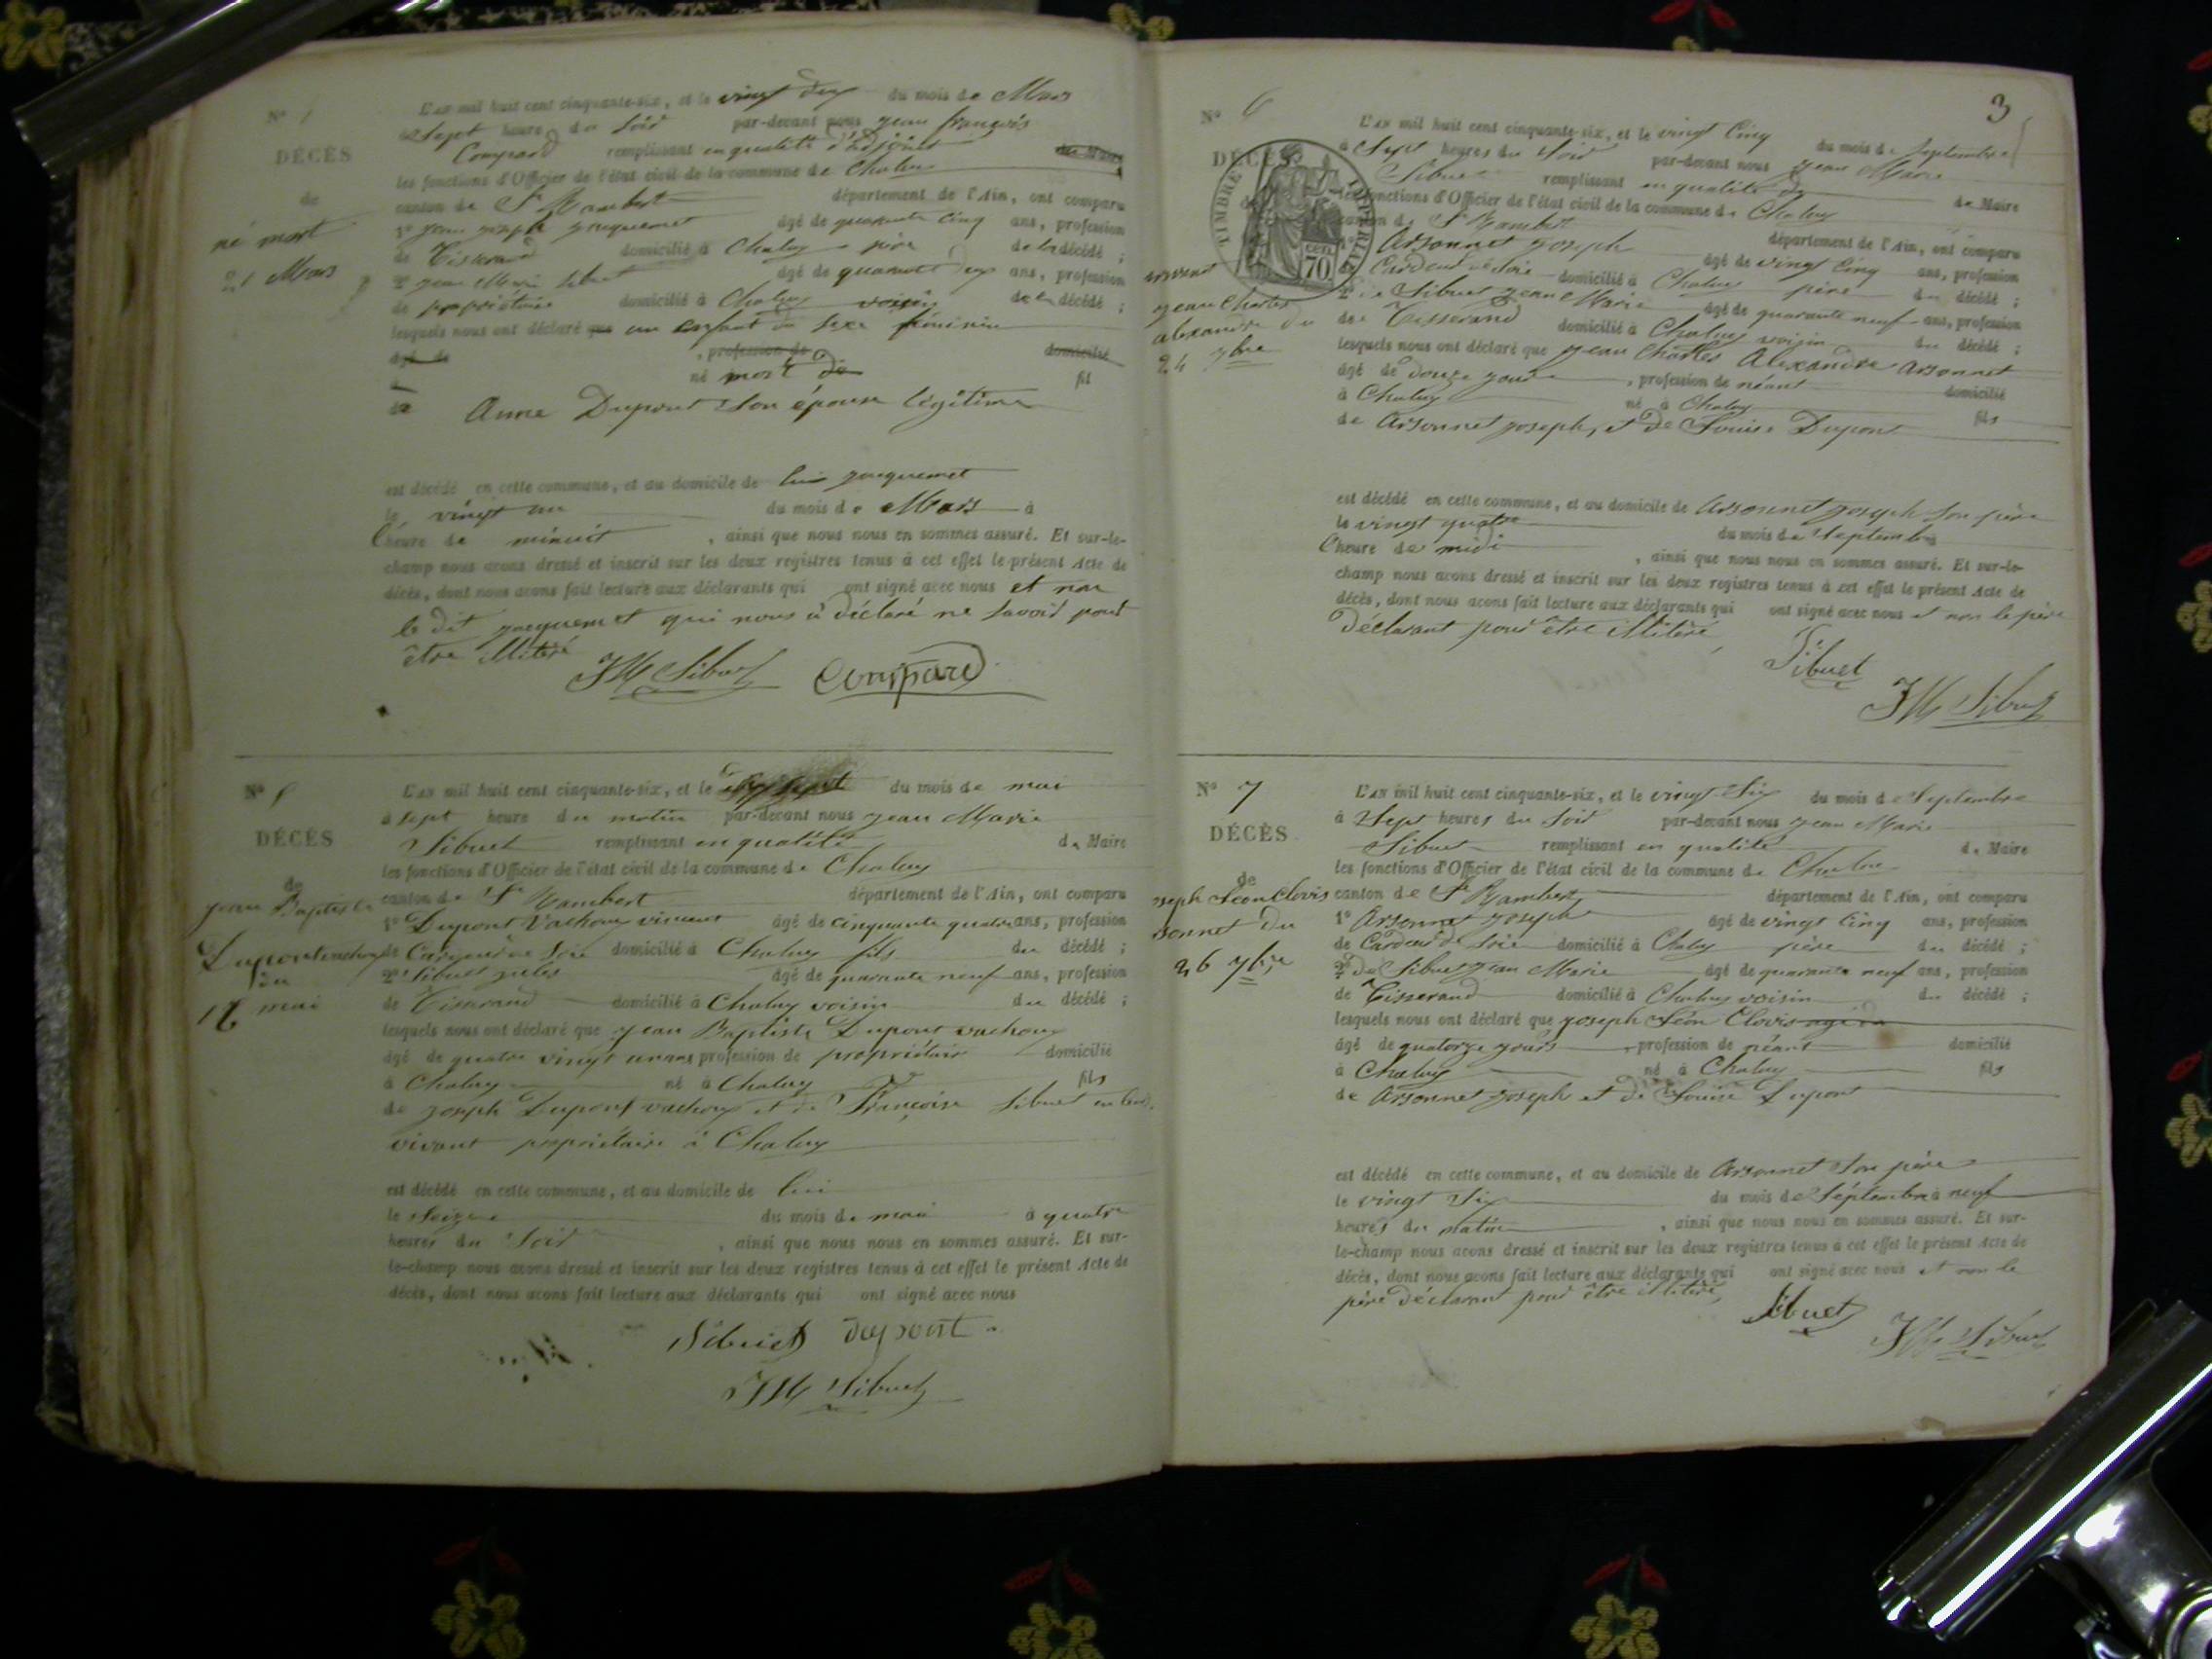 N°
DÉCÈS
de
né mort
21 Mars
L'an mil huit cent cinquante-six, et le vingt deux du mois de Mars
à Sept heure du Soir par-devant nous jean françois
Compard remplissant en qualité d'adjoint du Maire
les fonctions d'Officier de l'état civil de la commune de Chaley
canton de St Rambert département de l'Ain, ont comparu
1° jean joseph jacquemet âgé de quarante cinq ans, profession
de Tisserand domicilié à Chaley père de la décédé ;
2° jean Marie Sibuet âgé de quarante deux ans, profession
de propriétaire domicilié à Chaley voisin de la décédé ;
lesquels nous ont déclaré que un enfant du sexe féminin
âgé de , profession de domicilié
à né mort de fil
de Anne Dupont Son épouse légitime
est décédé en cette commune, et au domicile de lui jacquemet
le vingt un du mois de Mars à
l'heure de minuit , ainsi que nous nous en sommes assuré. Et sur-le-
champ nous avons dressé et inscrit sur les deux registres tenus à cet effet le présent Acte de
décès, dont nous avons fait lecture aux déclarants qui ont signé avec nous et non
le dit jacquemet qui nous à déclaré ne Savoir pour
être illitéré
JM Sibuet Compard
N°
DÉCÈS
de
jean Baptiste
Dupontvachoux
du
16 mai
L'an mil huit cent cinquante-six, et le dix sept du mois de mai
à sept heure du matin par-devant nous jean Marie
Sibuet remplissant en qualité de Maire
les fonctions d'Officier de l'état civil de la commune de Chaley
canton de St Rambert département de l'Ain, ont comparu
1° Dupont Vachoux vincent âgé de cinquante quatre ans, profession
de soie domicilié à Chaley fils du décédé ;
2° Sibuet âgé de quarante neuf ans, profession
de Tisserand domicilié à Chaley voisin du décédé ;
lesquels nous ont déclaré que jean Baptiste Dupont vachoux
âgé de quatre vingt un ans profession de propriétaire domicilié
à Chaley né à Chaley fils
de joseph Dupont vachoux et de Françoise Sibuet en leur
vivant propriétaire à Chaley
est décédé en cette commune, et au domicile de lui
le Seize du mois de mai à quatre
heures du Soir , ainsi que nous nous en sommes assuré. Et sur-
le-champ nous avons dressé et inscrit sur les deux registres tenus à cet effet le présent Acte de
décès, dont nous avons fait lecture aux déclarants qui ont signé avec nous
Sibuet dupont
JM Sibuet
3
N° 6
DÉCÈS
TIMBRE IMPERIAL
CEN. 70
jean Charles
alexandre du
24 7bre
L'an mil huit cent cinquante-six, et le vingt Cinq du mois de Septembre
à Sept heures du Soir par-devant nous jean Marie
Sibuet remplissant en qualité de de Maire
les fonctions d'Officier de l'état civil de la commune de Chaley
canton de St Rambert département de l'Ain, ont comparu
1° Arsonnet joseph âgé de vingt Cinq ans, profession
de Cardeur de Soie domicilié à Chaley père du décédé ;
2° de Sibuet jean Marie âgé de quarante neuf ans, profession
de Tisserand domicilié à Chaley voisin du décédé ;
lesquels nous ont déclaré que jean Charles Alexandre Arsonnet
âgé de douze jours , profession de néant domicilié
à Chaley né à Chaley fils
de Arsonnet joseph, et de Louise Dupont
est décédé en cette commune, et au domicile de Arsonnet joseph Son père
le vingt quatre du mois de Septembre à
l'heure de midi , ainsi que nous nous en sommes assuré. Et sur-le-
champ nous avons dressé et inscrit sur les deux registres tenus à cet effet le présent Acte de
décès, dont nous avons fait lecture aux déclarants qui ont signé avec nous et non le père
déclarant pour être illitéré,
Sibuet
JM Sibuet
N° 7
DÉCÈS
de
oseph Léon Clovis
sonnet du
26 7bre
L'an mil huit cent cinquante-six, et le vingt Six du mois de Septembre
à Sept heures du Soir par-devant nous jean Marie
Sibuet remplissant en qualité de Maire
les fonctions d'Officier de l'état civil de la commune de Chaley
canton de St Rambert département de l'Ain, ont comparu
1° Arsonnet joseph âgé de vingt Cinq ans, profession
de Cardeur de Soie domicilié à Chaley père du décédé ;
2° de Sibuet jean Marie âgé de quarante neuf ans, profession
de Tisserand domicilié à Chaley voisin du décédé ;
lesquels nous ont déclaré que joseph Léon Clovis
âgé de quatorze jours , profession de néant domicilié
à Chaley né à Chaley fils
de Arsonnet joseph et de Louise Dupont
est décédé en cette commune, et au domicile de Arsonnet Son père
le vingt Six du mois de Septembre à neuf
heures du matin , ainsi que nous nous en sommes assuré. Et sur-
le-champ nous avons dressé et inscrit sur les deux registres tenus à cet effet le présent Acte de
décès, dont nous avons fait lecture aux déclarants qui ont signé avec nous et non le
père déclarant pour être illitéré,
Sibuet
JM Sibuet